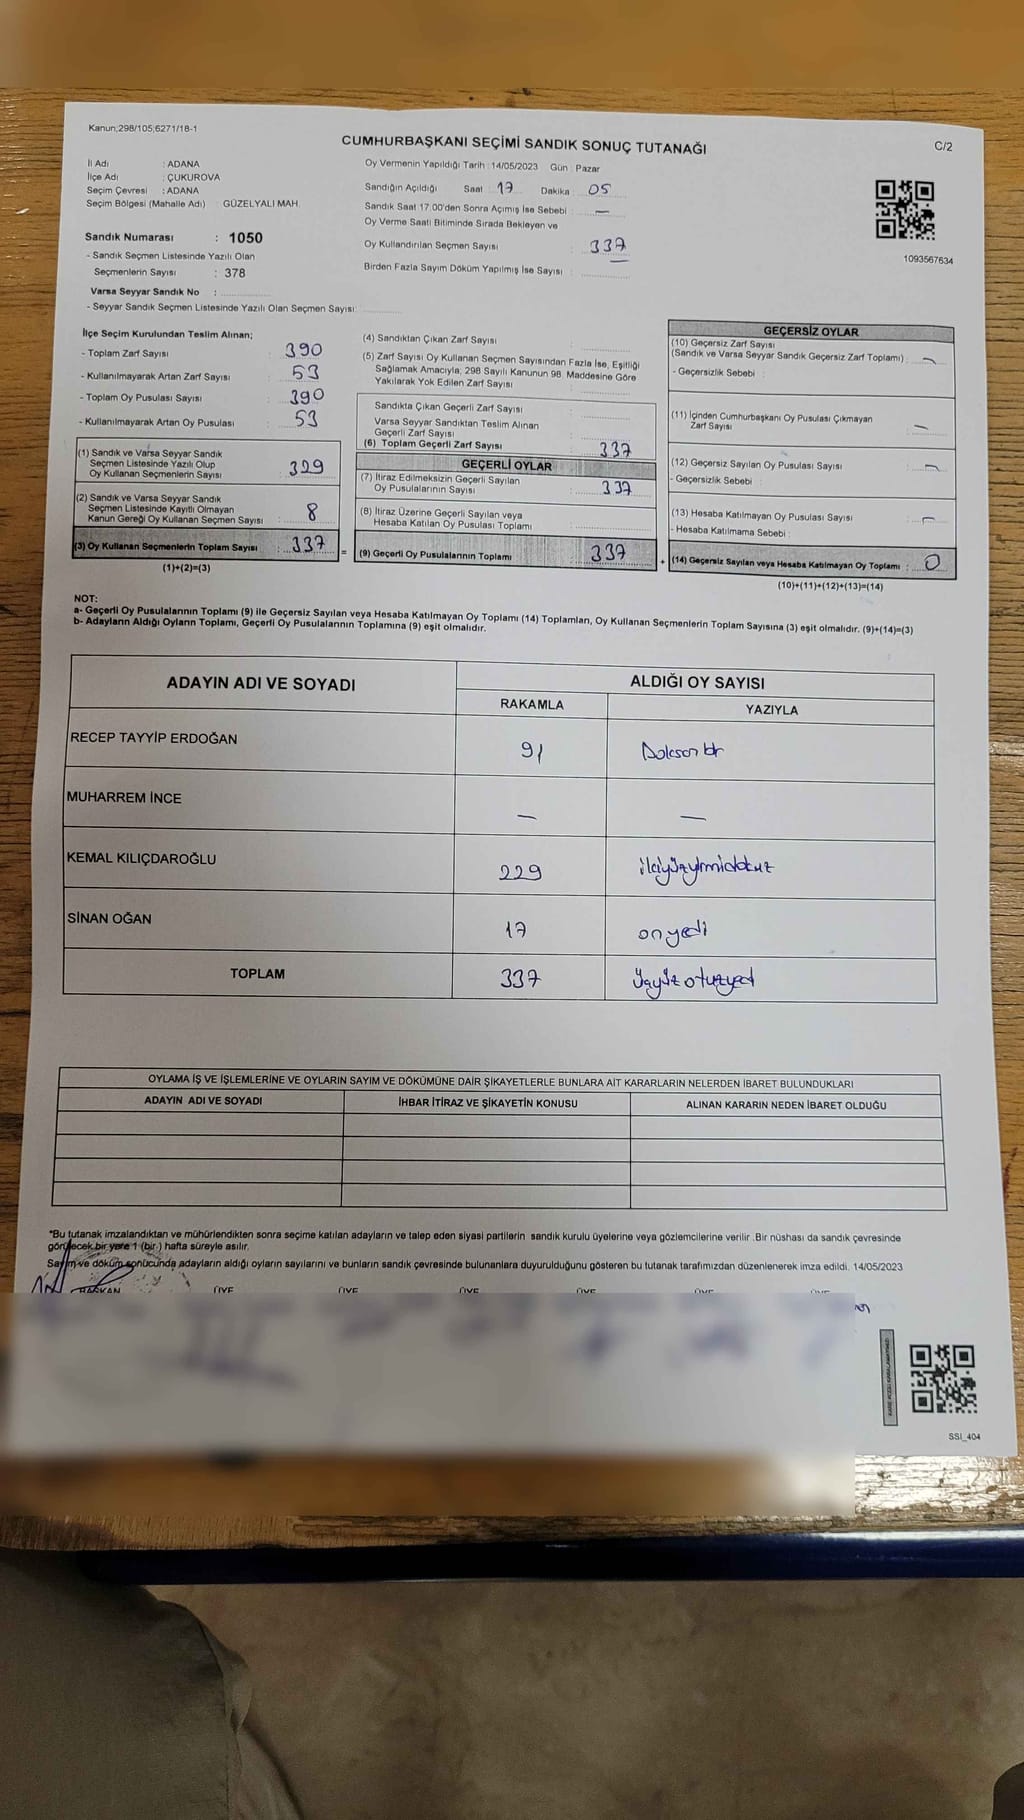 Kanun;298/105;6271/18-1
C/2
CUMHURBAŞKANI SEÇİMİ SANDIK SONUÇ TUTANAĞI
İl Adı : ADANA
İlçe Adı : ÇUKUROVA
Seçim Çevresi : ADANA
Seçim Bölgesi (Mahalle Adı) : GÜZELYALI MAH.
Sandık Numarası : 1050
- Sandık Seçmen Listesinde Yazılı Olan
Seçmenlerin Sayısı : 378
Varsa Seyyar Sandık No :
- Seyyar Sandık Seçmen Listesinde Yazılı Olan Seçmen Sayısı:
Oy Vermenin Yapıldığı Tarih : 14/05/2023 Gün : Pazar
Sandığın Açıldığı Saat 17 Dakika 05
Sandık Saat 17:00'den Sonra Açımış İse Sebebi : —
Oy Verme Saati Bitiminde Sırada Bekleyen ve
Oy Kullandırılan Seçmen Sayısı : 337
Birden Fazla Sayım Döküm Yapılmış İse Sayısı :
1093567634
İlçe Seçim Kurulundan Teslim Alınan;
- Toplam Zarf Sayısı : 390
- Kullanılmayarak Artan Zarf Sayısı : 53
- Toplam Oy Pusulası Sayısı : 390
- Kullanılmayarak Artan Oy Pusulası : 53
(1) Sandık ve Varsa Seyyar Sandık
Seçmen Listesinde Yazılı Olup
Oy Kullanan Seçmenlerin Sayısı : 329
(2) Sandık ve Varsa Seyyar Sandık
Seçmen Listesinde Kayıtlı Olmayan
Kanun Gereği Oy Kullanan Seçmen Sayısı : 8
(3) Oy Kullanan Seçmenlerin Toplam Sayısı : 337
(1)+(2)=(3)
(4) Sandıktan Çıkan Zarf Sayısı :
(5) Zarf Sayısı Oy Kullanan Seçmen Sayısından Fazla İse, Eşitliği
Sağlamak Amacıyla; 298 Sayılı Kanunun 98. Maddesine Göre
Yakılarak Yok Edilen Zarf Sayısı :
Sandıkta Çıkan Geçerli Zarf Sayısı :
Varsa Seyyar Sandıktan Teslim Alınan
Geçerli Zarf Sayısı :
(6) Toplam Geçerli Zarf Sayısı : 337
GEÇERLİ OYLAR
(7) İtiraz Edilmeksizin Geçerli Sayılan
Oy Pusulalarının Sayısı : 337
(8) İtiraz Üzerine Geçerli Sayılan veya
Hesaba Katılan Oy Pusulası Toplamı :
= (9) Geçerli Oy Pusulalarının Toplamı : 337 +
GEÇERSİZ OYLAR
(10) Geçersiz Zarf Sayısı
(Sandık ve Varsa Seyyar Sandık Geçersiz Zarf Toplamı) : —
- Geçersizlik Sebebi :
(11) İçinden Cumhurbaşkanı Oy Pusulası Çıkmayan
Zarf Sayısı : —
(12) Geçersiz Sayılan Oy Pusulası Sayısı : —
- Geçersizlik Sebebi :
(13) Hesaba Katılmayan Oy Pusulası Sayısı : —
- Hesaba Katılmama Sebebi :
(14) Geçersiz Sayılan veya Hesaba Katılmayan Oy Toplamı : 0
(10)+(11)+(12)+(13)=(14)
NOT:
a- Geçerli Oy Pusulalarının Toplamı (9) ile Geçersiz Sayılan veya Hesaba Katılmayan Oy Toplamı (14) Toplamları, Oy Kullanan Seçmenlerin Toplam Sayısına (3) eşit olmalıdır. (9)+(14)=(3)
b- Adayların Aldığı Oyların Toplamı, Geçerli Oy Pusulalarının Toplamına (9) eşit olmalıdır.
ADAYIN ADI VE SOYADI
ALDIĞI OY SAYISI
RAKAMLA YAZIYLA
RECEP TAYYİP ERDOĞAN 91 Doksan bir
MUHARREM İNCE — —
KEMAL KILIÇDAROĞLU 229 ikiyüzyirmidokuz
SİNAN OĞAN 17 on yedi
TOPLAM 337 üçyüz otuzyedi
OYLAMA İŞ VE İŞLEMLERİNE VE OYLARIN SAYIM VE DÖKÜMÜNE DAİR ŞİKAYETLERLE BUNLARA AİT KARARLARIN NELERDEN İBARET BULUNDUKLARI
ADAYIN ADI VE SOYADI İHBAR İTİRAZ VE ŞİKAYETİN KONUSU ALINAN KARARIN NEDEN İBARET OLDUĞU
*Bu tutanak imzalandıktan ve mühürlendikten sonra seçime katılan adayların ve talep eden siyasi partilerin sandık kurulu üyelerine veya gözlemcilerine verilir .Bir nüshası da sandık çevresinde
görülecek bir yere 1 (bir ) hafta süreyle asılır.
Sayım ve döküm sonucunda adayların aldığı oyların sayılarını ve bunların sandık çevresinde bulunanlara duyurulduğunu gösteren bu tutanak tarafımızdan düzenlenerek imza edildi. 14/05/2023
BAŞKAN ÜYE ÜYE ÜYE ÜYE ÜYE ÜYE
SSI_404